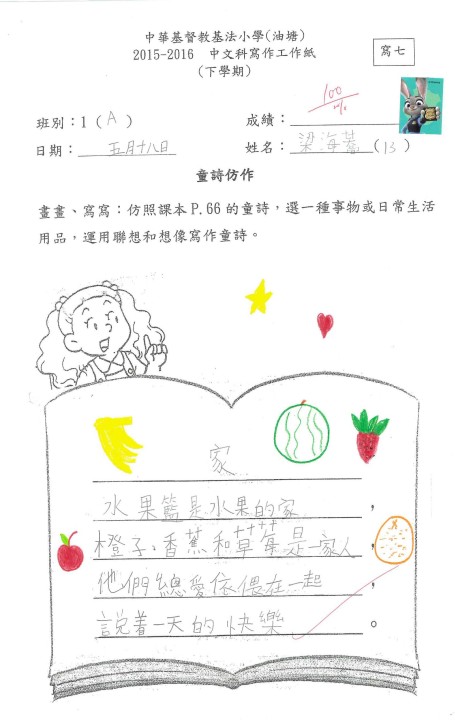 中華基督教基法小學(油塘)
2015-2016 中文科寫作工作紙
(下學期)
寫七
100
班別：1 ( A )
成績：
日期： 五月十八日
姓名： 梁海蕎 (13)
童詩仿作
畫畫、寫寫：仿照課本 P.66 的童詩，選一種事物或日常生活
用品，運用聯想和想像寫作童詩。
家
水果籃是水果的家，
橙子、香蕉和草莓是一家人，
他們總愛依偎在一起，
說着一天的快樂。